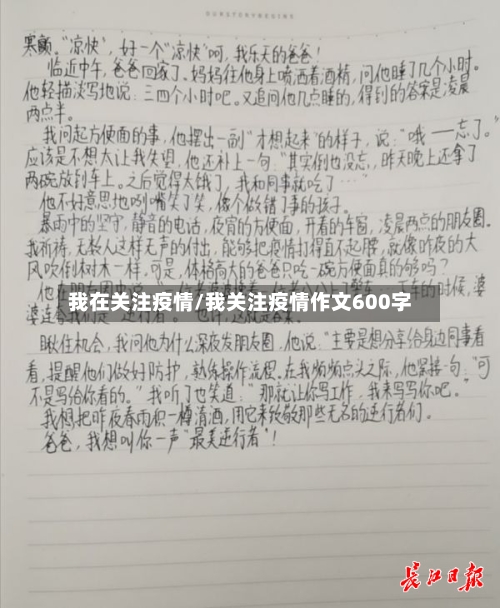 寒颤。“凉快”，好一个“凉快”啊，我乐天的爸爸！
临近中午，爸爸回家了。妈妈往他身上喷洒着酒精，问他睡了几个小时。
他轻描淡写地说：三四个小时吧。又追问他几点睡的，得到的答案是凌晨
两点半。
我问起方便面的事，他摆出一副“才想起来”的样子，说：“哦——忘了。”
应该是不想太让我失望，他还补上一句：“其实倒也没忘，昨天晚上还拿了
两碗放到车上。之后觉得太饿了，我和同事就吃了……”
他不好意思地咧嘴笑了笑，像个做错了事的孩子。
暴雨中的坚守，静音的电话，夜宵的方便面，开着的车窗，凌晨两点的朋友圈。
我祈祷，无数人这样无声的付出，能够把疫情打得直不起腰，就像昨夜的大
风吹倒树木一样，可是，体格高大的爸爸只吃一碗方便面真的够吗？
我在关注疫情/我关注疫情作文600字
瞅住机会，我问他为什么深夜发朋友圈，他说，“主要是想分享给身边同事看
看，提醒他们做好防护，熟练操作流程。在我频频点头之际，他紧接一句：“可
不是写给你看的。”我听了也笑道：“那就让你写工作，我来写写你吧。”
我想把昨夜春雨积一樽清酒，用它来致敬那些无名的逆行者们。
爸爸，我想叫你一声“最美逆行者”！
长江日报